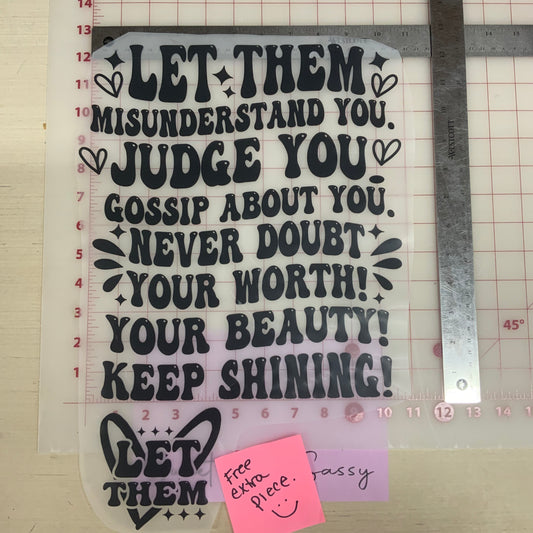 LET THEM
MISUNDERSTAND YOU.
JUDGE YOU
GOSSIP ABOUT YOU.
NEVER DOUBT
YOUR WORTH!
YOUR BEAUTY!
KEEP SHINING!
LET
THEM
Free
extra
piece.
Sassy
WESTCOTT
45°
14
13
12
11
10
9
8
7
6
5
4
3
2
1
1 2 3 4 5 6 7 8 9 10 11 12 13 14 15